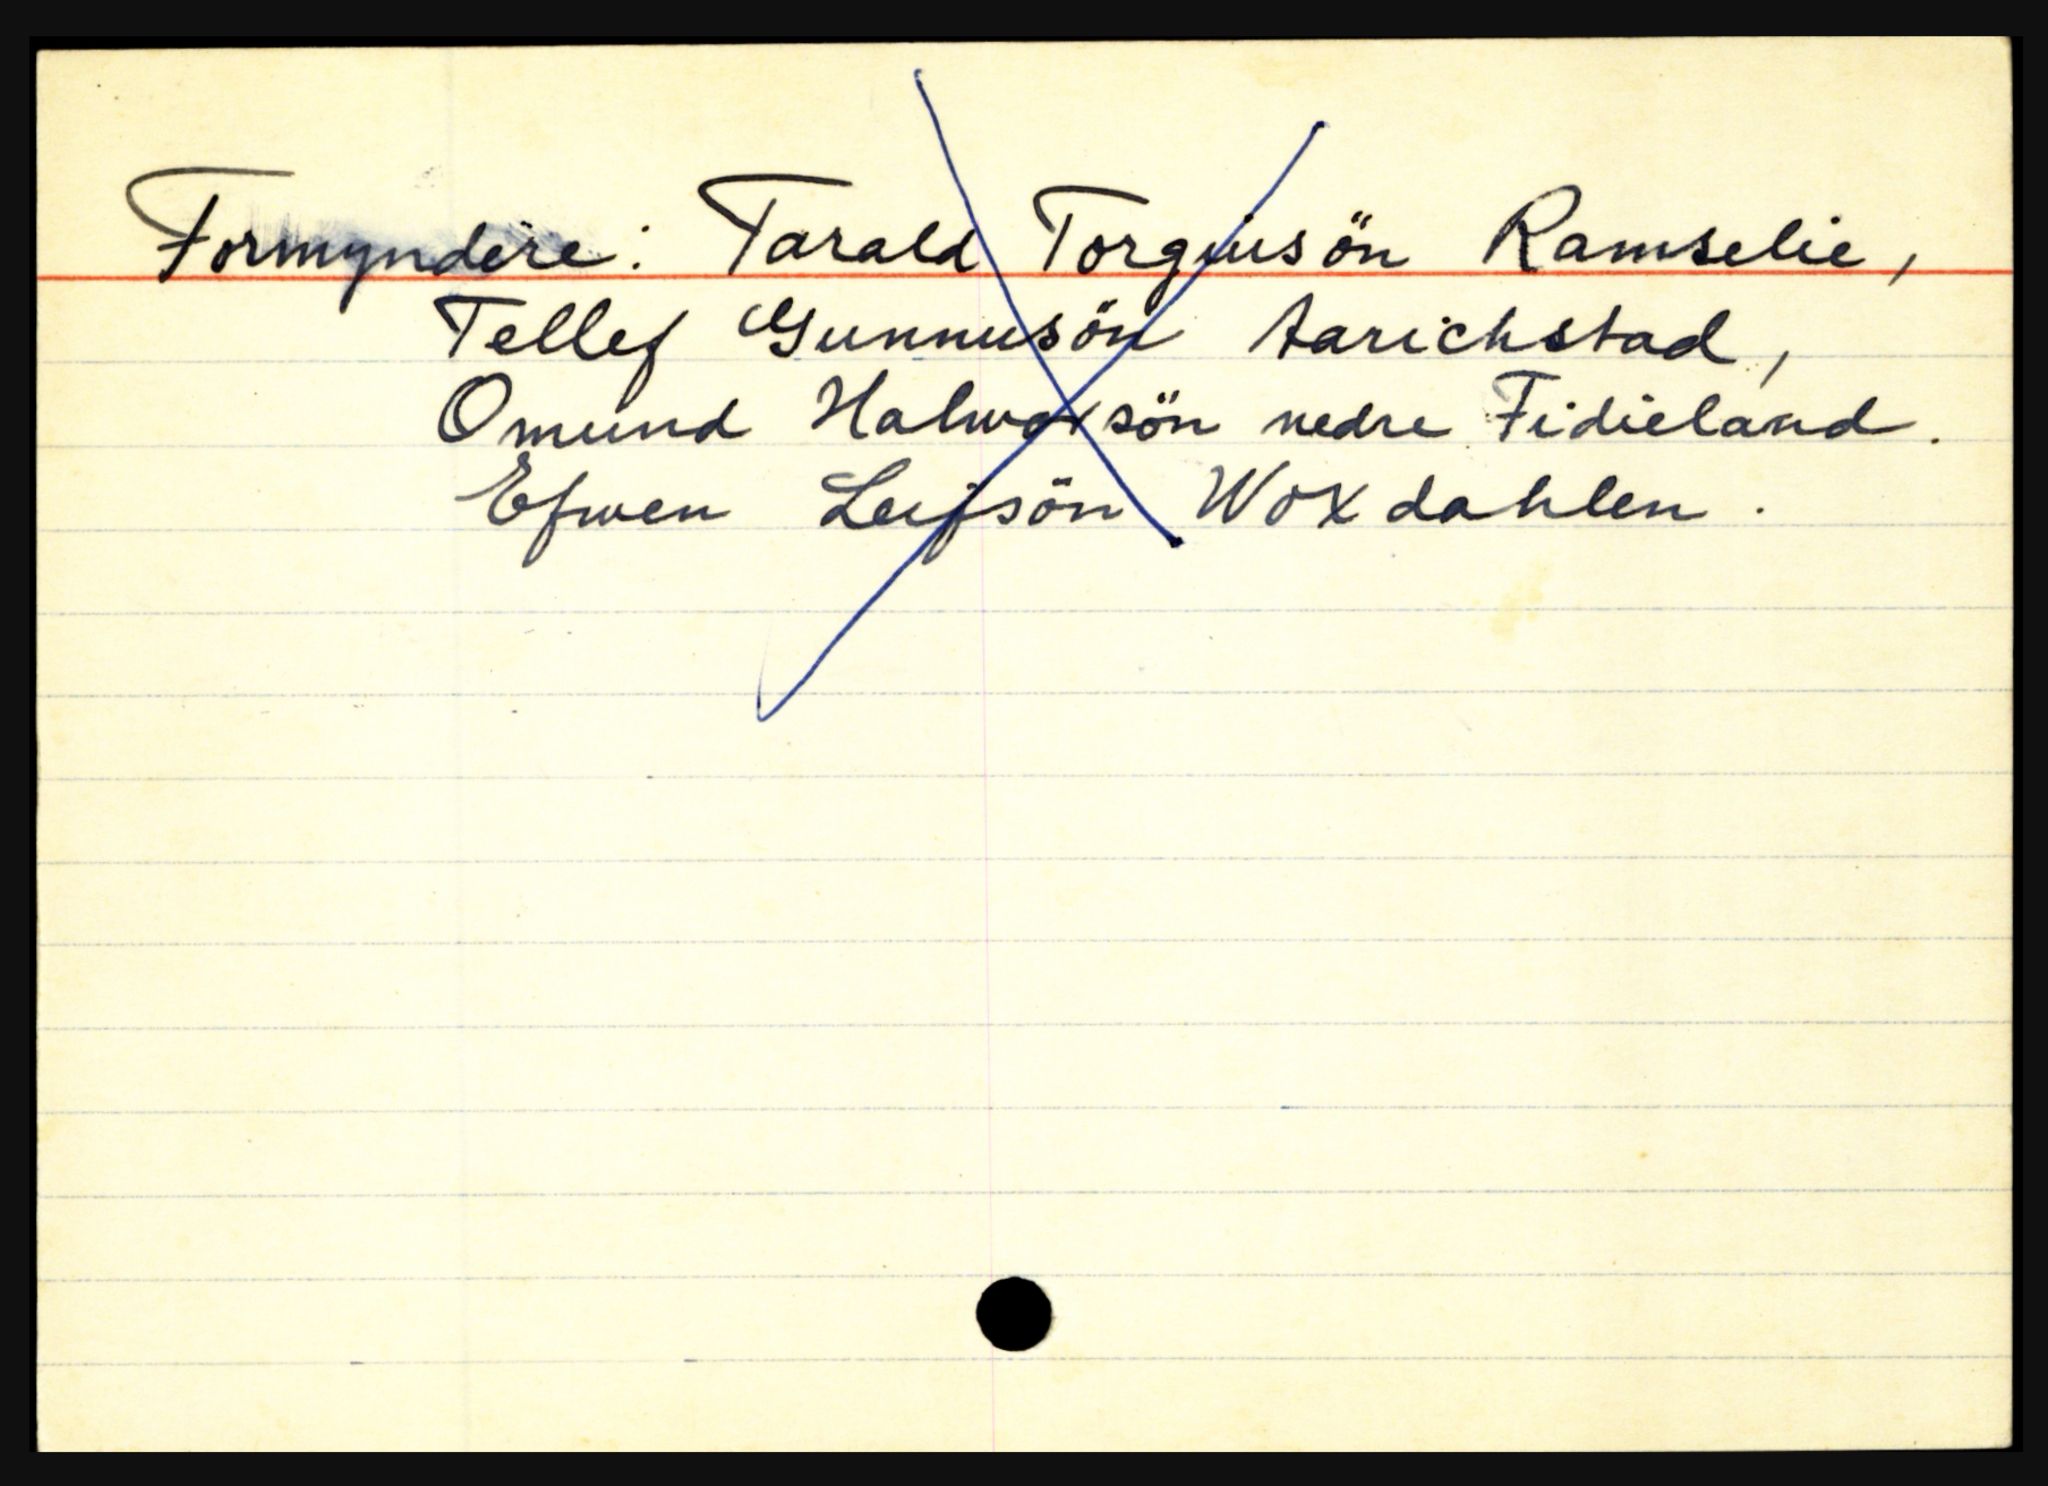 Formyndere: Tarald Torgiusön Ramselie,
Tellef Gunnusön Aarichstad,
Omund Halworsön nedre Fidieland.
Efwen Leifsön Woxdahlen.